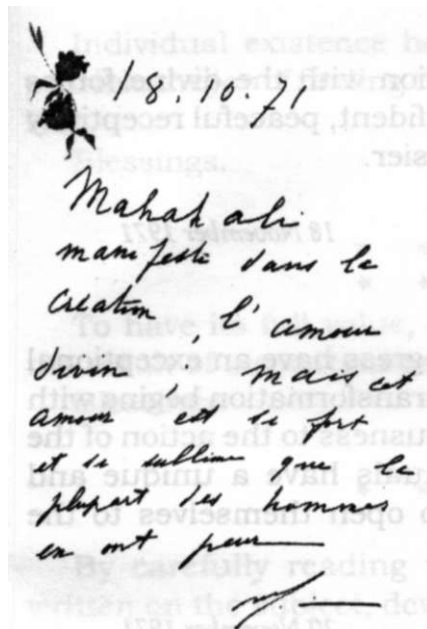 18.10.71
Mahakali
manifeste dans la
création, l'amour
divin, mais cet
amour est si fort
et si sublime que la
plupart des hommes
en ont peur